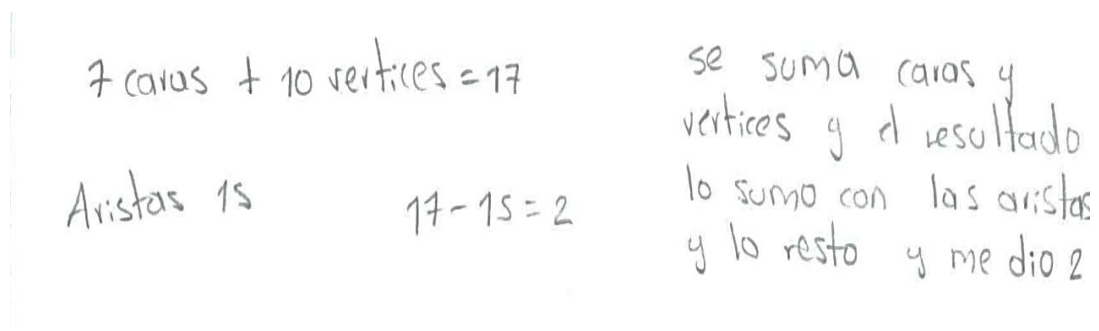 7 caras + 10 vertices = 17
Aristas 15
17 - 15 = 2
se suma caras y
vertices y el resultado
lo sumo con las aristas
y lo resto y me dio 2